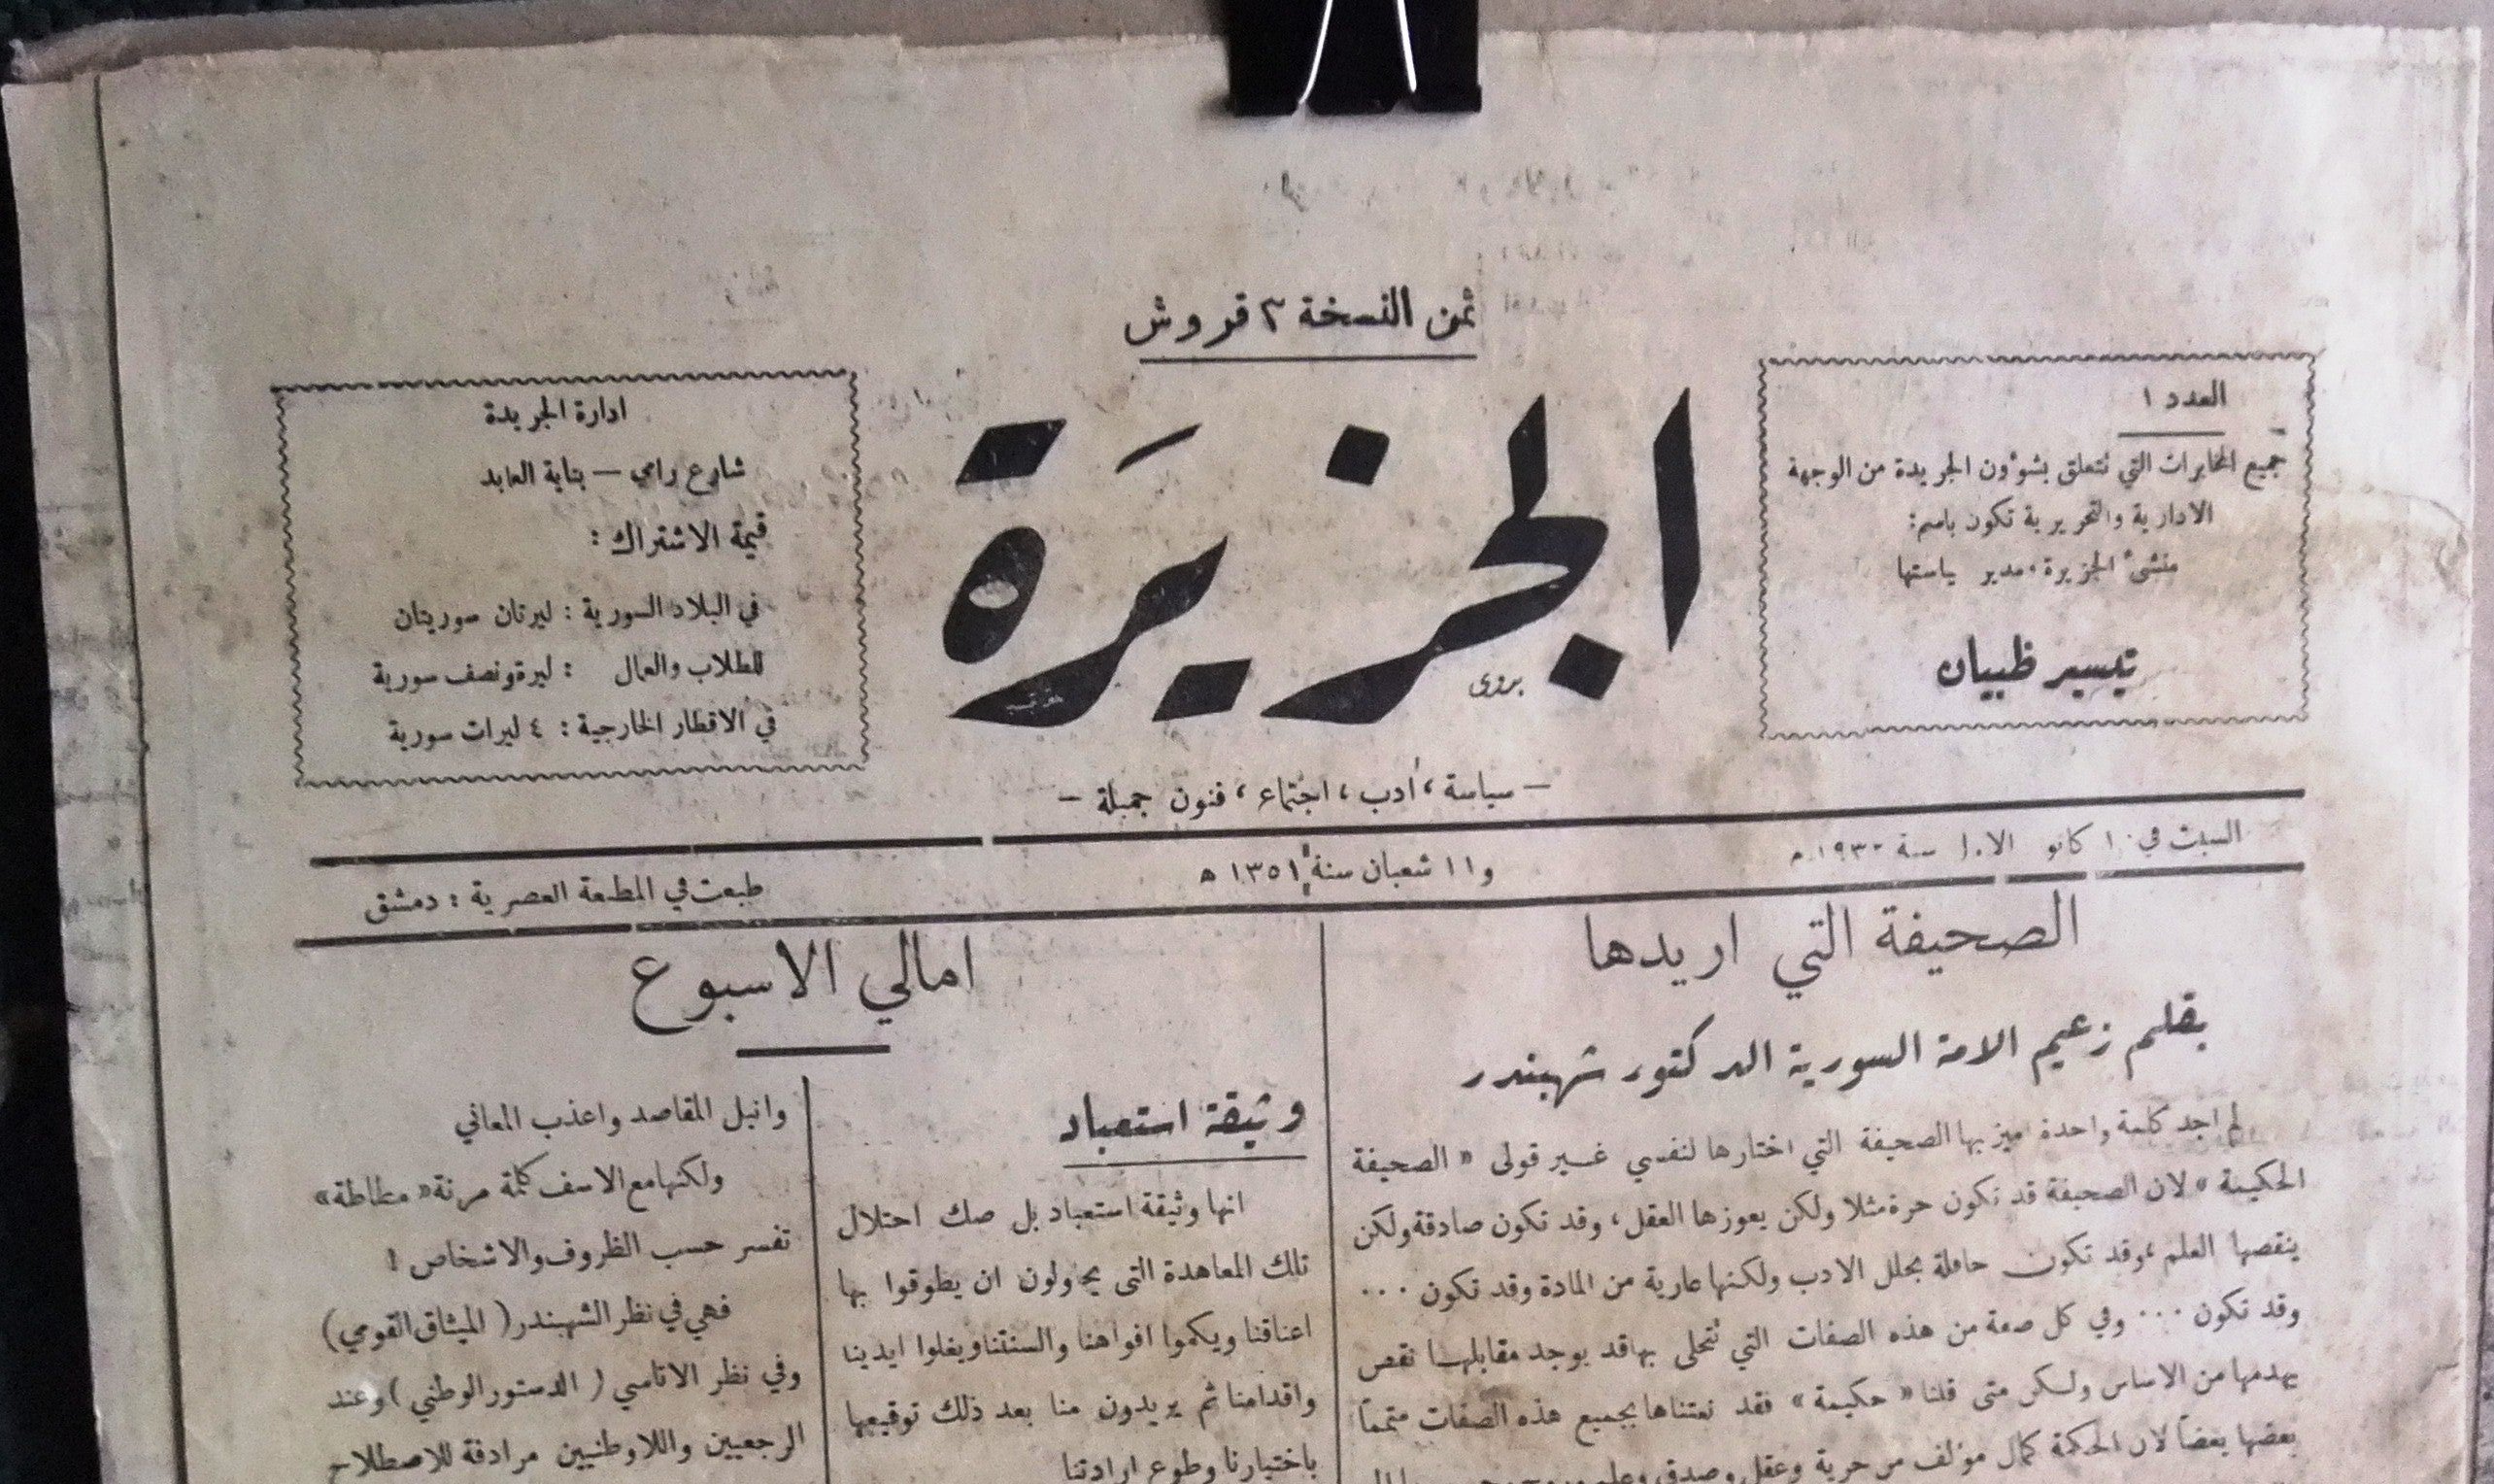 ثمن النسخة ٣ قروش
العدد ١
جميع المخابرات التي تتعلق بشوءون الجريدة من الوجهة
الادارية والتحريرية تكون باسم:
منشئ الجزيرة ومدير ياستها
تيسير ظبيان
الجزيرة
بدوي
ادارة الجريدة
شارع رامي — بناية العابد
قيمة الاشتراك :
في البلاد السورية : ليرتان سوريتان
للطلاب والعمال : ليرة ونصف سورية
في الاقطار الخارجية : ٤ ليرات سورية
— سياسة ، أدب ، اجتماع ، فنون جميلة —
السبت في ١٠ كانو الاول سنة ١٩٣٢ م
و ١١ شعبان سنة ١٣٥١ ه
طبعت في المطبعة العصرية : دمشق
الصحيفة التي اريدها
بقلم زعيم الامة السورية الدكتور شهبندر
لم اجد كلمة واحدة اميز بها الصحيفة التي اختارها لنفسي غير قولى « الصحيفة
الحكيمة » لان الصحيفة قد تكون حرة مثلا ولكن يعوزها العقل ، وقد تكون صادقة ولكن
ينقصها العلم ، وقد تكون حافلة بحلل الادب ولكنها عارية من المادة وقد تكون ...
وقد تكون ... وفي كل صفة من هذه الصفات التي تتحلى بها قد يوجد مقابلها نقص
يهدمها من الاساس ولكن متى قلنا « حكيمة » فقد نعتناها بجميع هذه الصفات متمماً
بعضها بعضاً لان الحكمة كمال مؤلف من حرية وعقل وصدق وعلم
امالي الاسبوع
وثيقة استعباد
انها وثيقة استعباد بل صك احتلال
تلك المعاهدة التى يحولون ان يطوقوا بها
اعناقنا ويكموا افواهنا والسنتنا ويغلوا ايدينا
واقدامنا ثم يريدون منا بعد ذلك توقيعها
باختيارنا وطوع ارادتنا
وانبل المقاصد واعذب المعاني
ولكنها مع الاسف كلمة مرنة « مطاطة »
تفسر حسب الظروف والاشخاص !
فهي في نظر الشهبندر ( الميثاق القومي )
وفي نظر الاتاسي ( الدستور الوطني ) وعند
الرجعيين واللاوطنيين مرادفة للاصطلاح